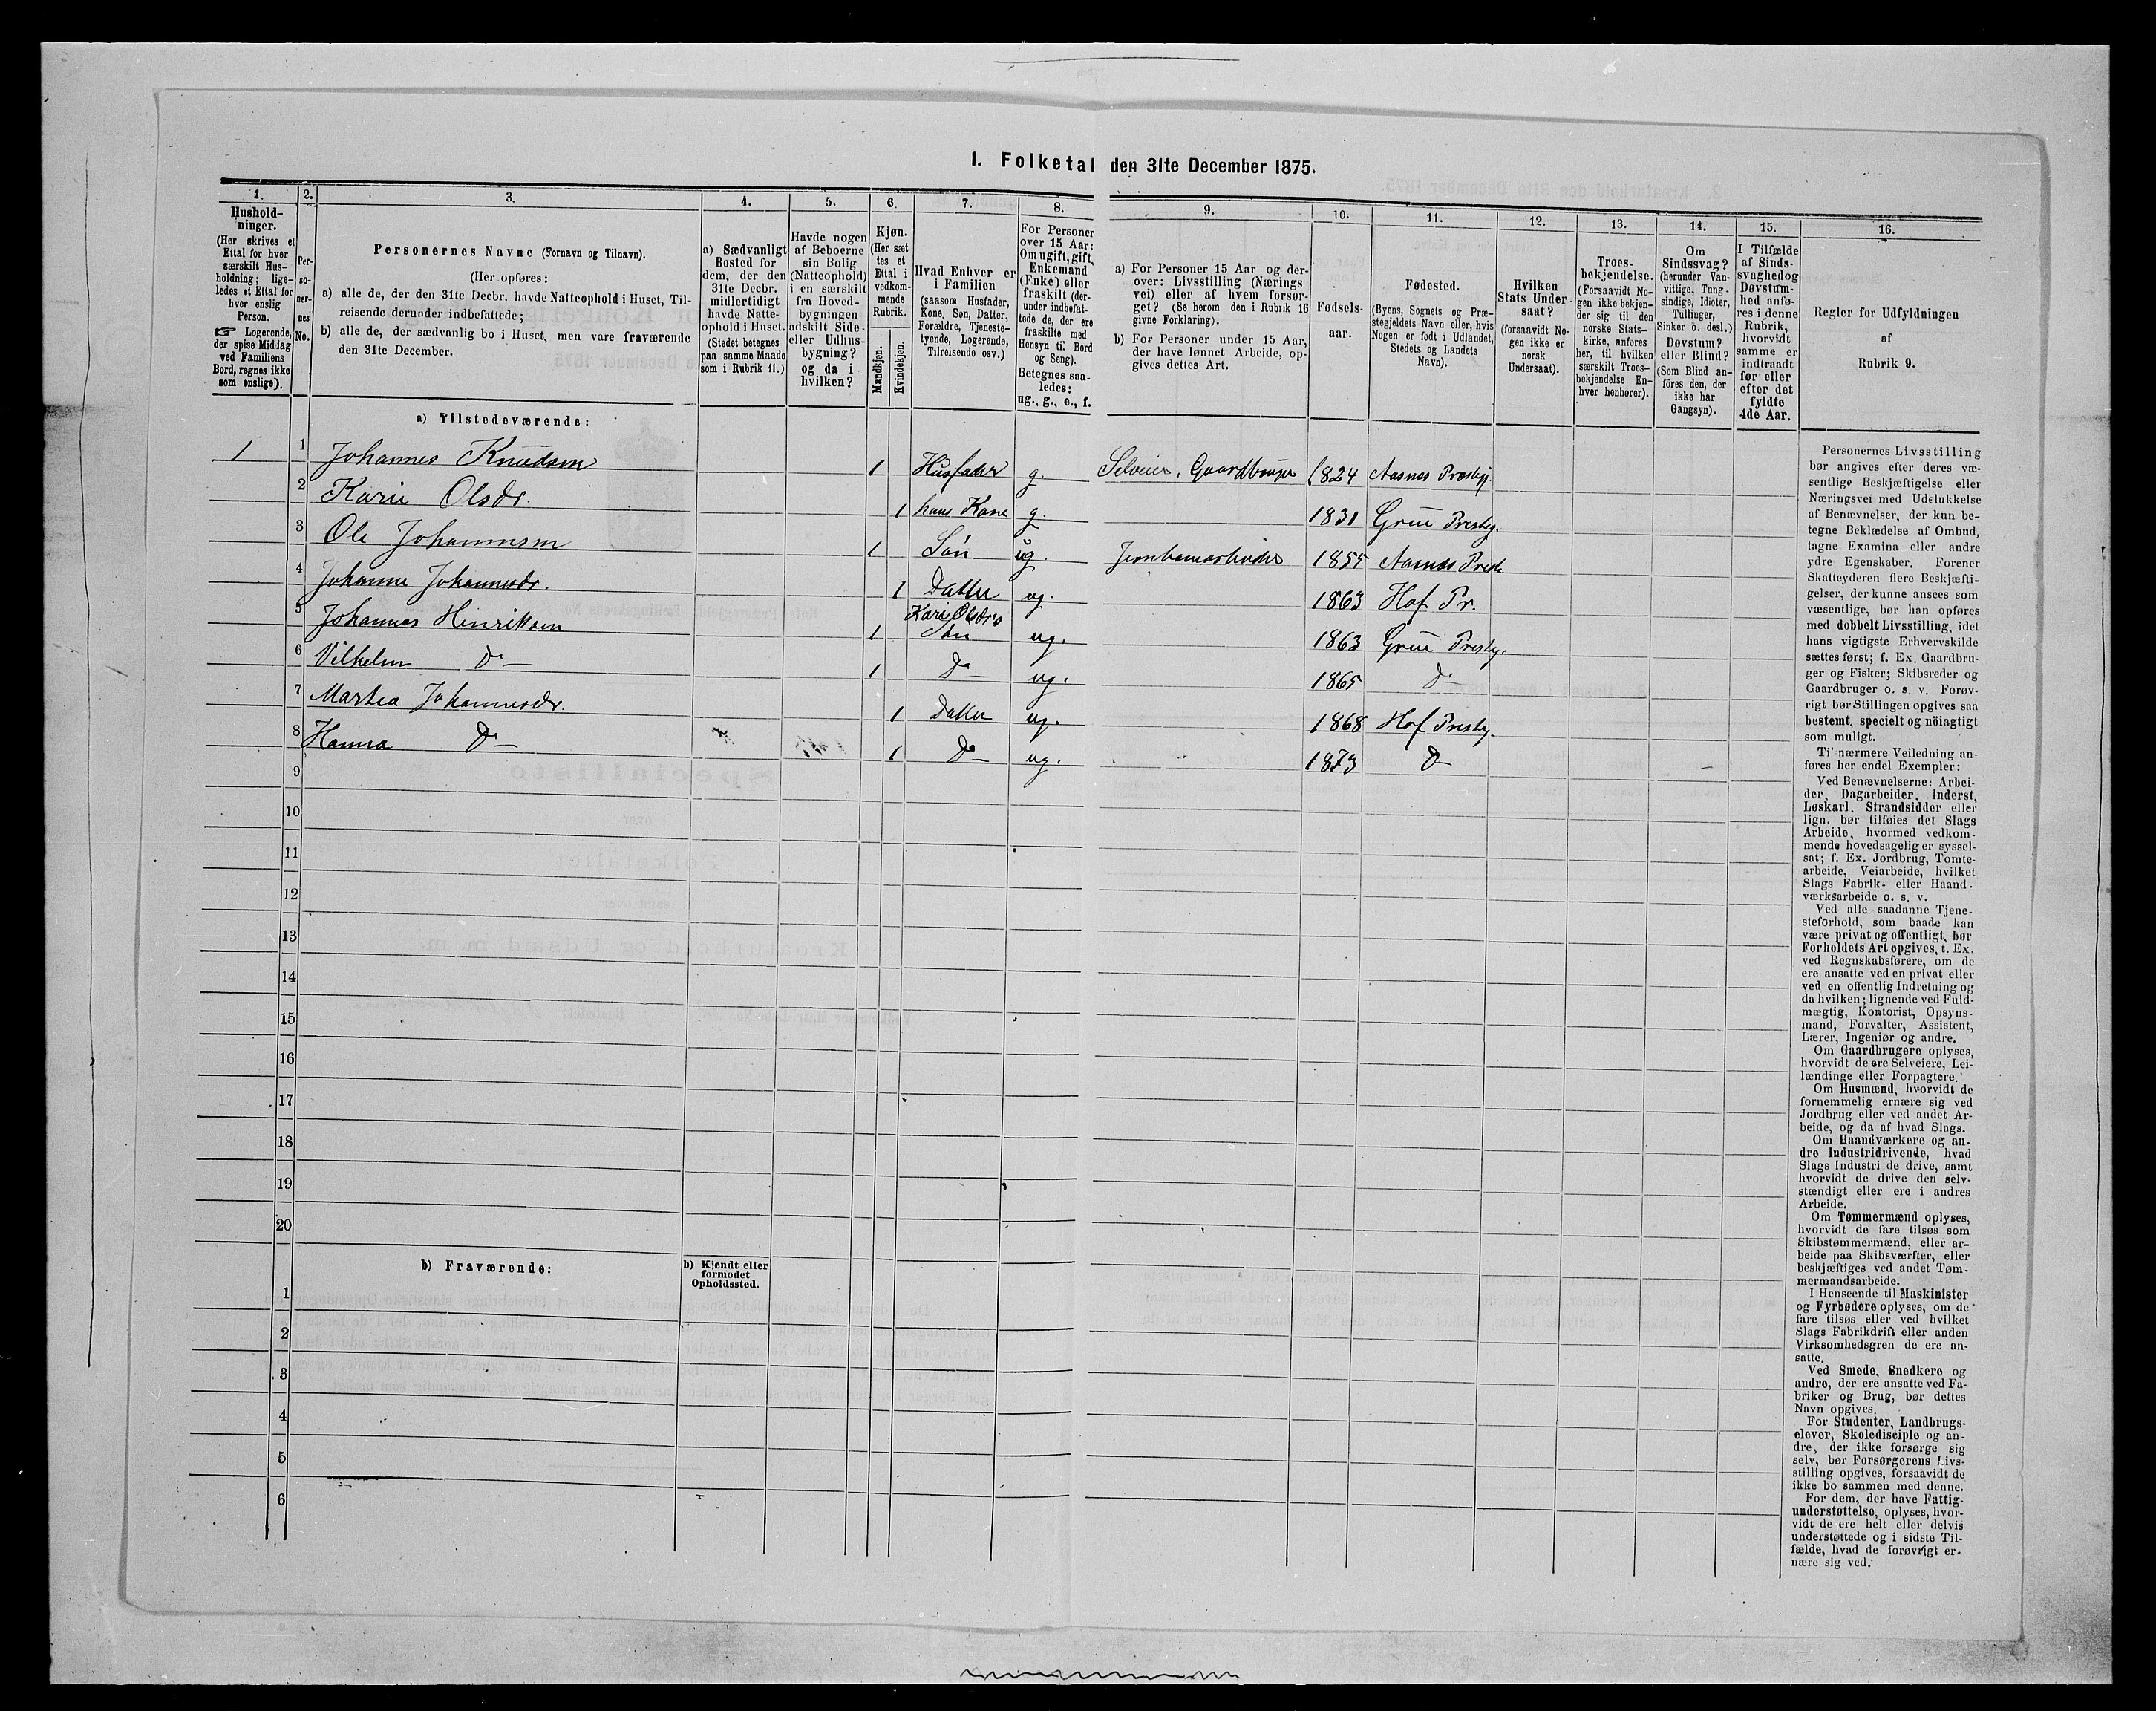 I. Folketal den 31te December 1875.
1. 2. 3. 4. 5. 6. 7. 8. 9. 10. 11. 12. 13. 14. 15. 16.
Hushold-
ninger.
(Her skrives et
Ettal for hver
særskilt Hus-
holdning; lige-
ledes et Ettal for
hver enslig
Person.
☞ Logerende,
der spise Middag
ved Familiens
Bord, regnes ikke
som enslige).
Per-
so-
ner-
nes
No.
Personernes Navne (Fornavn og Tilnavn).
(Her opføres:
a) alle de, der den 31te Decbr. havde Natteophold i Huset, Til-
reisende derunder indbefattede;
b) alle de, der sædvanlig bo i Huset, men vare fraværende
den 31te December.
a) Sædvanligt
Bosted for
dem, der den
31te Decbr.
midlertidigt
havde Natte-
ophold i Huset.
(Stedet betegnes
paa samme Maade
som i Rubrik 11.)
Havde nogen
af Beboerne
sin Bolig
(Natteophold)
i en særskilt
fra Hoved-
bygningen
adskilt Side-
eller Udhus-
bygning?
og da i
hvilken?
Kjøn.
(Her sæt
tes et
Ettal i
vedkom-
mende
Rubrik.
Mandkjøn.
Kvindekjøn.
Hvad Enhver er
i Familien
(saasom Husfader,
Kone, Søn, Datter,
Forældre, Tjeneste-
tyende, Logerende,
Tilreisende osv.)
For Personer
over 15 Aar:
Om ugift, gift,
Enkemand
(Enke) eller
fraskilt (der-
under indbefat-
tede de, der ere
fraskilte med
Hensyn til Bord
og Seng).
Betegnes saa-
ledes:
ug., g., e., f.
a) For Personer 15 Aar og der-
over: Livsstilling (Nærings
vei) eller af hvem forsør-
get? (Se herom den i Rubrik 16
givne Forklaring).
b) For Personer under 15 Aar,
der have lønnet Arbeide, op-
gives dettes Art.
Fødsels-
aar.
Fødested.
(Byens, Sognets og Præ-
stegjeldets Navn eller, hvis
Nogen er født i Udlandet,
Stedets og Landets
Navn).
Hvilken
Stats Under-
saat?
(forsaavidt No-
gen ikke er
norsk
Undersaat).
Troes-
bekjendelse.
(Forsaavidt No-
gen ikke bekjen-
der sig til den
norske Stats-
kirke, anføres
her, til hvilken
særskilt Troes-
bekjendelse En-
hver henhører).
Om
Sindssvag?
(herunder Van-
vittige, Tung-
sindige, Idioter,
Tullinger,
Sinker o. desl.)
Døvstum?
eller Blind?
(Som Blind an-
føres den, der
ikke har
Gangsyn).
I Tilfælde
af Sinds-
svaghed og
Døvstum-
hed anfø-
res i denne
Rubrik,
hvorvidt
samme er
indtraadt
før eller
efter det
fyldte
4de Aar.
Regler for Udfyldningen
af
Rubrik 9.
a) Tilstedeværende:
1 1 Johannes Knudsen 1 Husfader g. Selveier, Gaardbruger 1824 Aasnes Præstgj.
2 Karie Olsdr. 1 hans Kone g. 1831 Grue Prestg.
3 Ole Johannesen 1 Søn ug. Jernbanearbeider 1855 Aasnes Prest.
4 Johanne Johannesdr. 1 Datter ug. 1863 Hof Pr.
5 Johannes Henriksen 1 Kari Olsdrs Søn ug. 1863 Grue Prestg.
6 Vilhelm Do — 1 Do — ug. 1865 Do —
7 Marthea Johannesdr. 1 Datter ug. 1868 Hof Prestg.
8 Hanna Do — 1 Do — ug. 1873 Do —
9
10
11
12
13
14
15
16
17
18
19
20
b) Fraværende:
b) Kjendt eller
formodet
Opholdssted.
1
2
3
4
5
6
Personernes Livsstilling
bør angives efter deres væ-
sentlige Beskjæftigelse eller
Næringsvei med Udelukkelse
af Benævnelser, der kun be-
tegne Beklædelse af Ombud,
tagne Examina eller andre
ydre Egenskaber. Forener
Skatteyderen flere Beskjæfti-
gelser, der kunne ansees som
væsentlige, bør han opføres
med dobbelt Livsstilling, idet
hans vigtigste Erhvervskilde
sættes først; f. Ex. Gaardbru-
ger og Fisker; Skibsreder og
Gaardbruger o. s. v. Forøv-
rigt bør Stillingen opgives saa
bestemt, specielt og nöiagtigt
som muligt.
Til nærmere Veiledning an-
føres her endel Exempler:
Ved Benævnelserne: Arbei-
der, Dagarbeider, Inderst,
Løskarl, Strandsidder eller
lign. bør tilføies det Slags
Arbeide, hvormed vedkom-
mende hovedsagelig er syssel-
sat; f. Ex. Jordbrug, Tomte-
arbeide, Veiarbeide, hvilket
Slags Fabrik- eller Haand-
værksarbeide o. s. v.
Ved alle saadanne Tjene-
steforhold, som baade kan
være privat og offentligt, bør
Forholdets Art opgives, t. Ex.
ved Regnskabsførere, om de
ere ansatte ved en privat eller
ved en offentlig Indretning og
da hvilken; lignende ved Fuld-
mægtig, Kontorist, Opsyns-
mand, Forvalter, Assistent,
Lærer, Ingeniør og andre.
Om Gaardbrugere oplyses,
hvorvidt de ere Selveiere, Lei-
lændinge eller Forpagtere.
Om Husmænd, hvorvidt de
fornemmelig ernære sig ved
Jordbrug eller ved andet Ar-
beide, og da af hvad Slags.
Om Haandværkere og an-
dre Industridrivende, hvad
Slags Industri de drive, samt
hvorvidt de drive den selv-
stændigt eller ere i andres
Arbeide.
Om Tømmermænd oplyses,
hvorvidt de fare tilsøs som
Skibstømmermænd, eller ar-
beide paa Skibsværfter, eller
beskjæftiges ved andet Tøm-
mermandsarbeide.
I Henseende til Maskinister
og Fyrbødere oplyses, om de
fare tilsøs eller ved hvilket
Slags Fabrikdrift eller anden
Virksomhedsgren de ere an-
satte.
Ved Smede, Snedkere og
andre, der ere ansatte ved Fa-
briker og Brug, bør dettes
Navn opgives.
For Studenter, Landbrugs-
elever, Skoledisciple og an-
dre, der ikke forsørge sig
selv, bør Forsørgerens Livs-
stilling opgives, forsaavidt de
ikke bo sammen med denne.
For dem, der have Fattig-
understøttelse, oplyses, hvor-
vidt de ere helt eller delvis
understøttede og i sidste Til-
fælde, hvad de forøvrigt er-
nære sig ved.